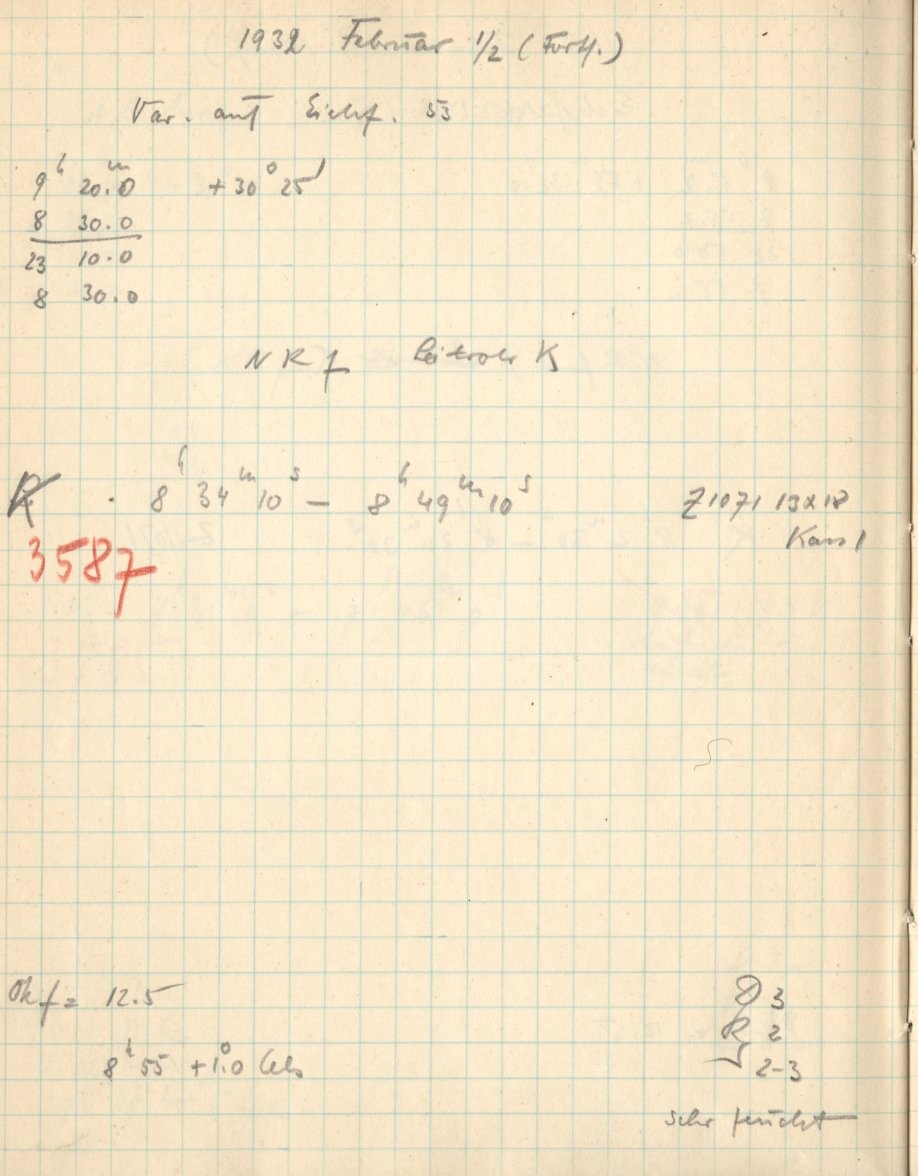 1932 Februar 1/2 (Forts.)
Var. auf Eichf. 53
9ʰ 20.0ᵐ +30° 25'
8 30.0
23 10.0
8 30.0
NR 7 Leitrohr K
K . 8ʰ 34ᵐ 10ˢ — 8ʰ 49ᵐ 10ˢ Z1071 13x18
Kass 1
3587
Okf = 12.5
3
R 2
8ʰ 55 +1°.0 Cels
2-3
sehr feucht